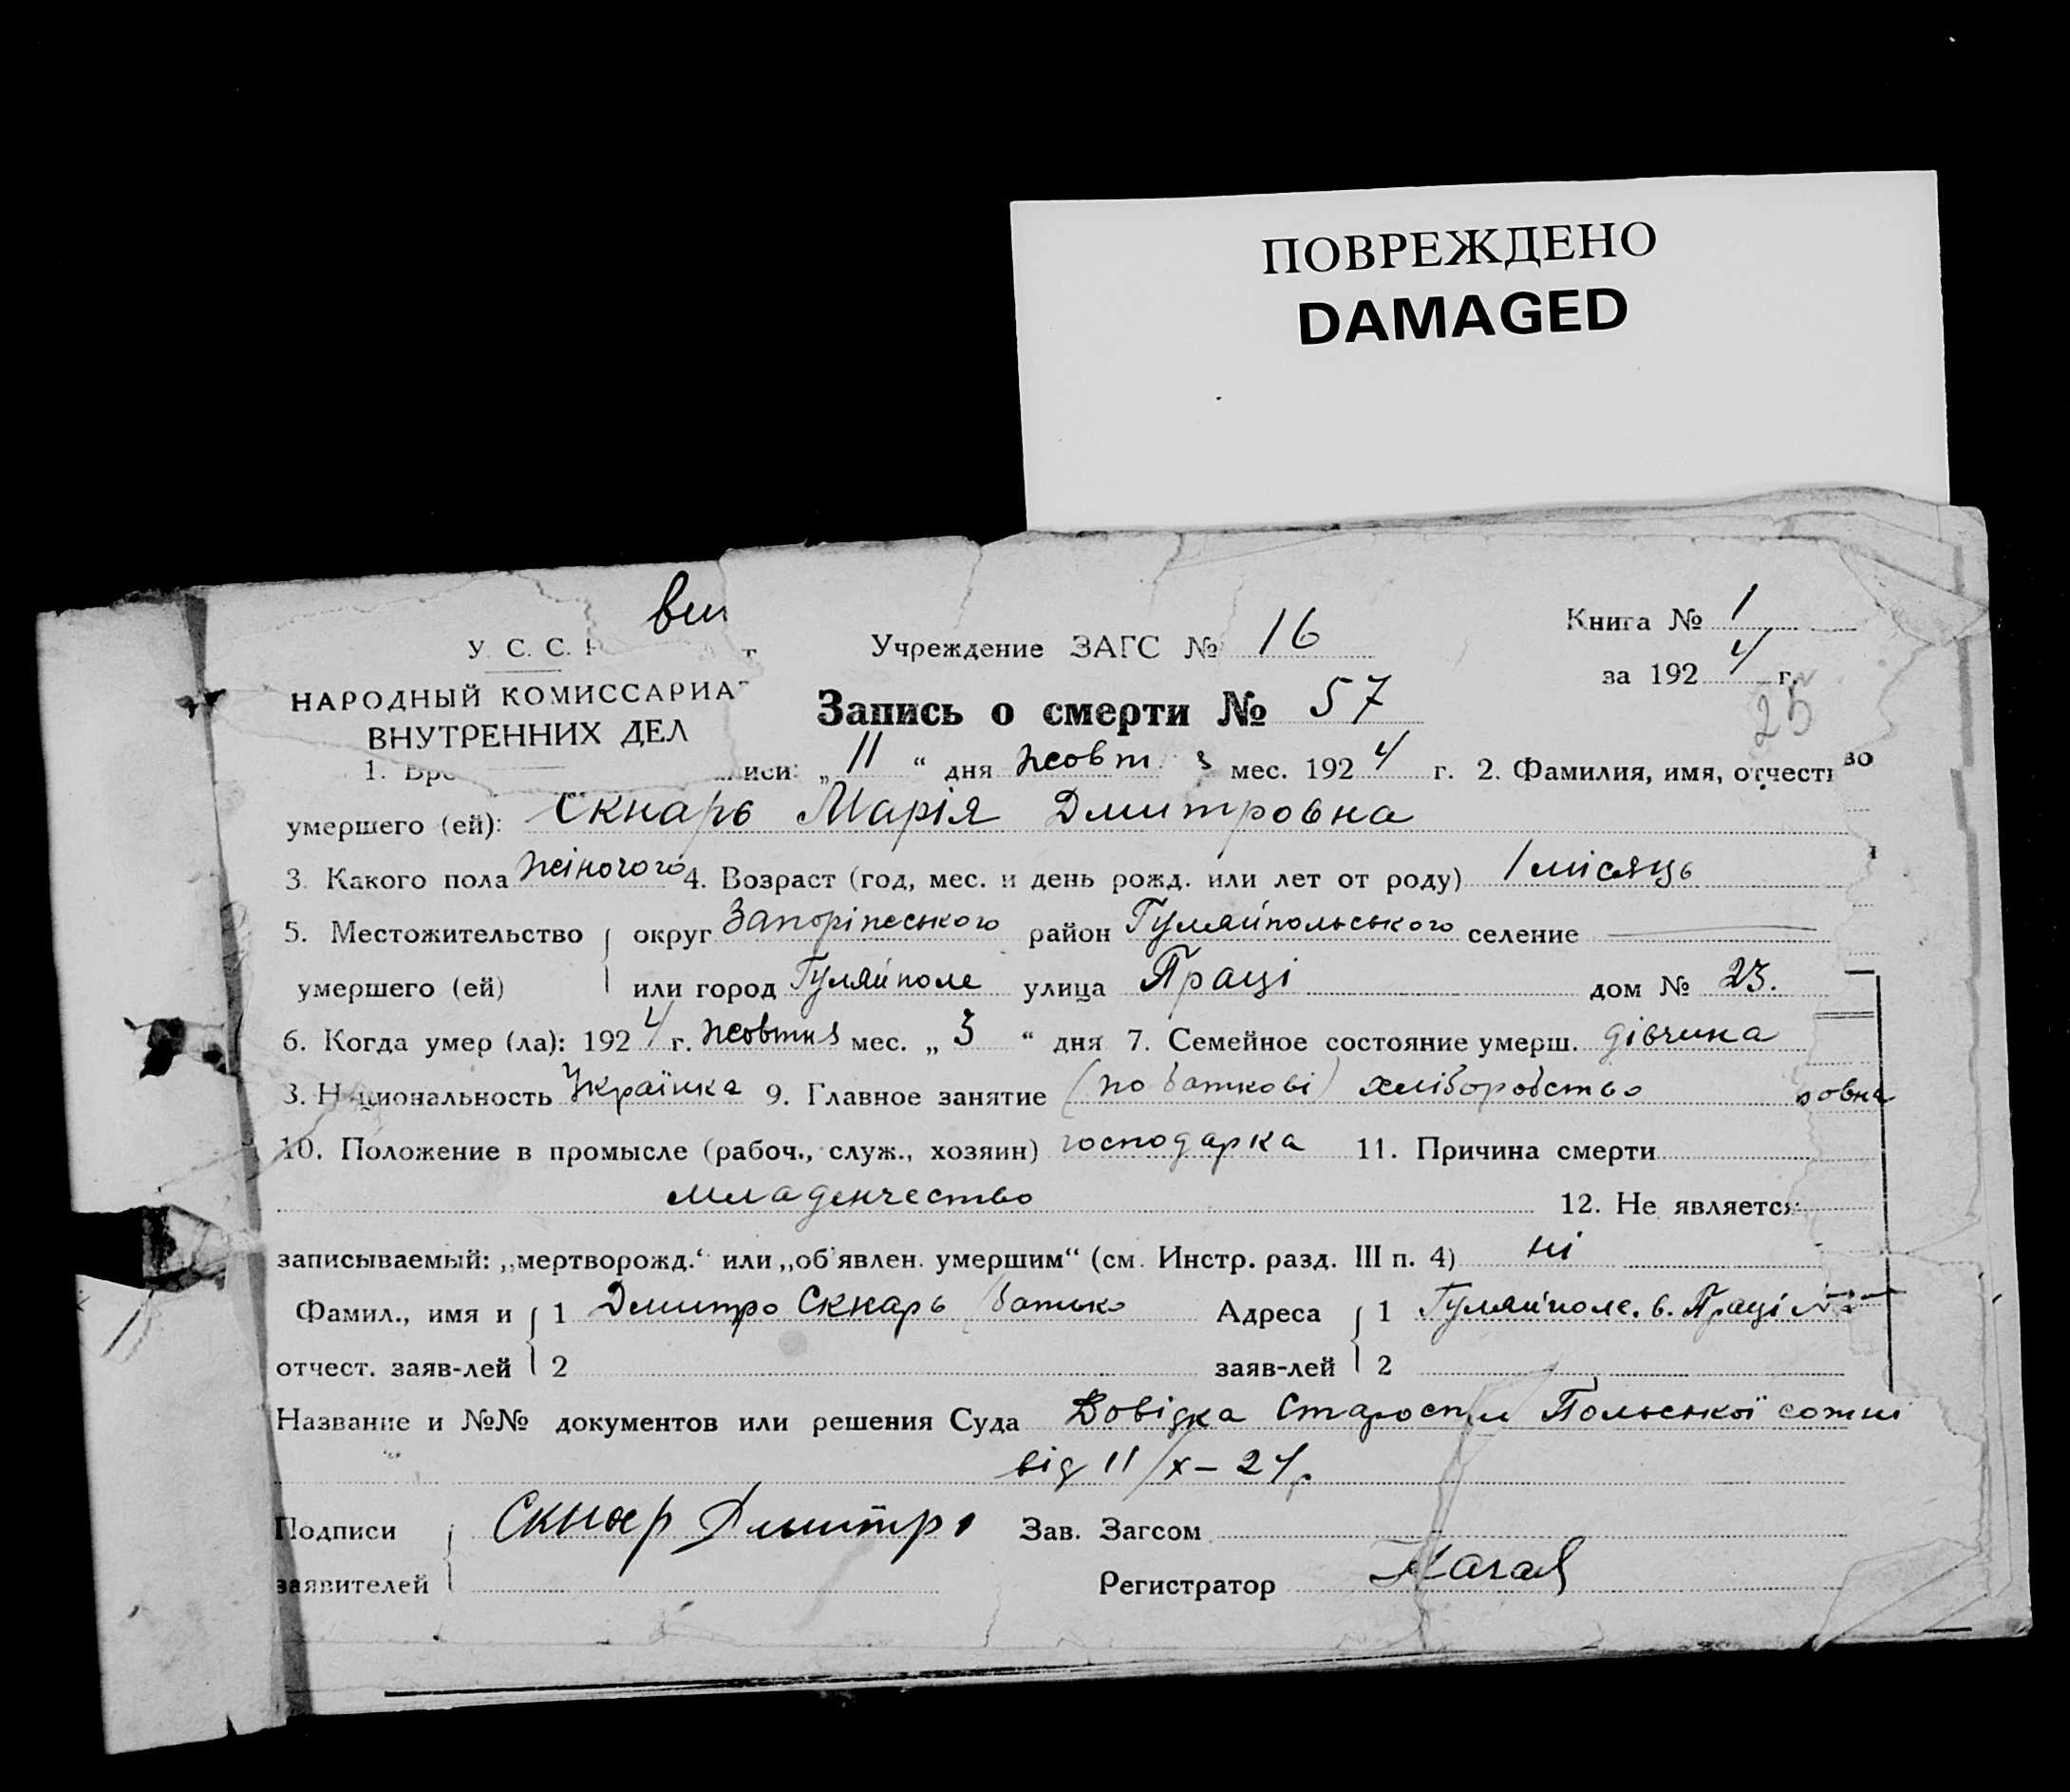 ПОВРЕЖДЕНО
DAMAGED
Книга № 1
У. С. С. Учреждение ЗАГС № 16
за 1924 г.
25
НАРОДНЫЙ КОМИССАРИА
ВНУТРЕННИХ ДЕЛ
Запись о смерти № 57
1. иси: „11“ дня жовтня мес. 1924 г. 2. Фамилия, имя, отчество
умершего (ей): Скнарь Марія Дмитровна
3. Какого пола жіночого 4. Возраст (год, мес. и день рожд. или лет от роду) 1 місяць
5. Местожительство округ Запоріжського район Гуляйпольського селение —
умершего (ей) или город Гуляйполе улица Праці дом № 23.
6. Когда умер (ла): 1924 г. жовтня мес. „3“ дня 7. Семейное состояние умерш. дівчина
8. Национальность Українка 9. Главное занятие (по баткові) хліборобство
ровна
10. Положение в промысле (рабоч., служ., хозяин) господарка 11. Причина смерти
младенчество 12. Не является
записываемый: „мертворожд.“ или „об'явлен. умершим“ (см. Инстр. разд. III п. 4) ні
Фамил., имя и 1 Дмитро Скнарь батько Адреса 1 Гуляйполе. в. Праці №
отчест. заяв-лей 2 заяв-лей 2
Название и №№ документов или решения Суда Довідка Старости Польської сотні
від 11/X–24 р.
Подписи Скнар Дмитро Зав. Загсом
заявителей Регистратор